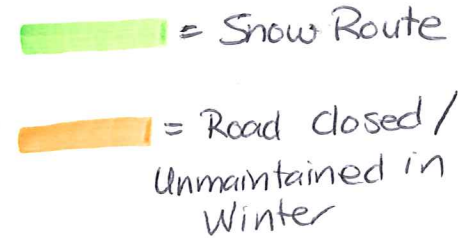 = Snow Route
= Road closed /
Unmaintained in
Winter